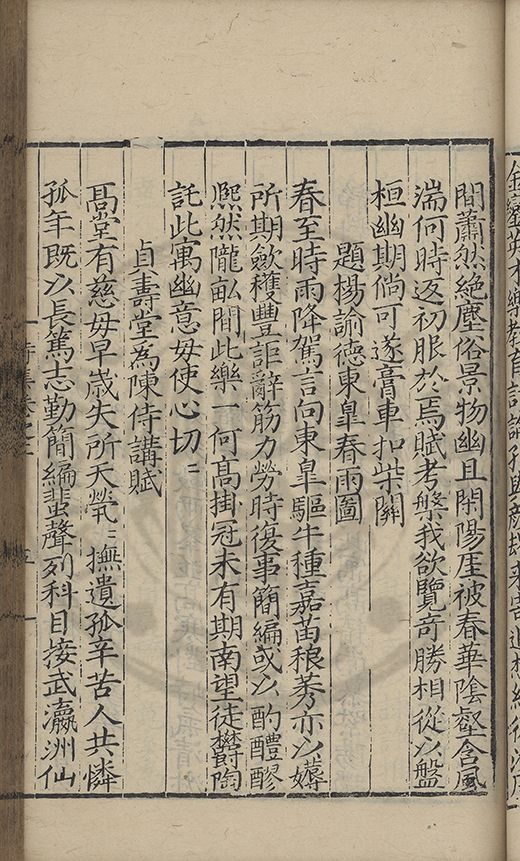 間蕭然絶塵俗景物幽且閑陽厓被春華陰壑含風
湍何時返初服於焉賦考槃我欲覽奇勝相從以盤
桓幽期倘可遂膏車扣柴關
題楊諭德東皐春雨圖
春至時雨降駕言向東皐驅牛種嘉苗稂莠亦以薅
所期斂穫豐詎辭筋力勞時復事簡編或以酌醴醪
熈然隴畝間此樂一何髙掛冠未有期南望徒欝陶
託此寓幽意毋使心切〻
貞壽堂為陳侍講賦
髙堂有慈母早歲失所天煢〻撫遺孤辛苦人共憐
孤年既以長篤志勤簡編蜚聲列科目接武瀛洲仙